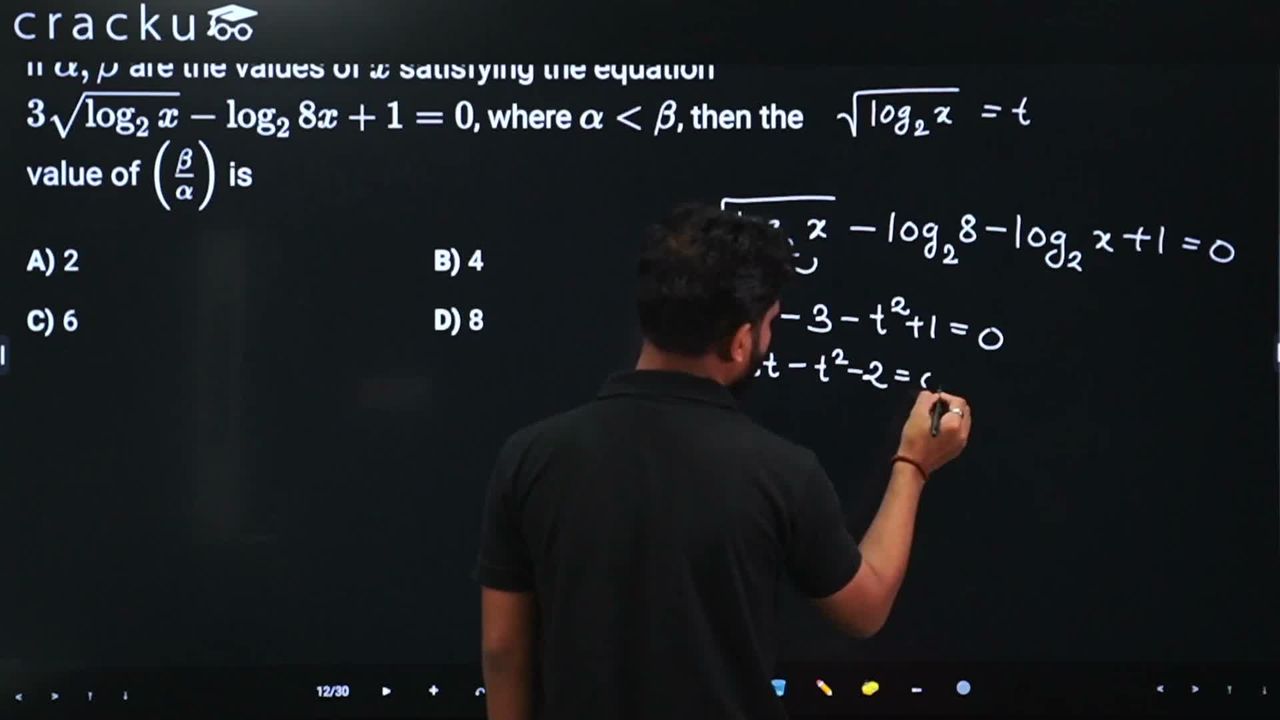 cracku
If α, β are the values of x satisfying the equation
3√(log₂ x) − log₂ 8x + 1 = 0, where α < β, then the
value of (β/α) is
A) 2
B) 4
C) 6
D) 8
√(log₂ x) = t
x − log₂ 8 − log₂ x + 1 = 0
− 3 − t² + 1 = 0
t − t² − 2 =
12/30